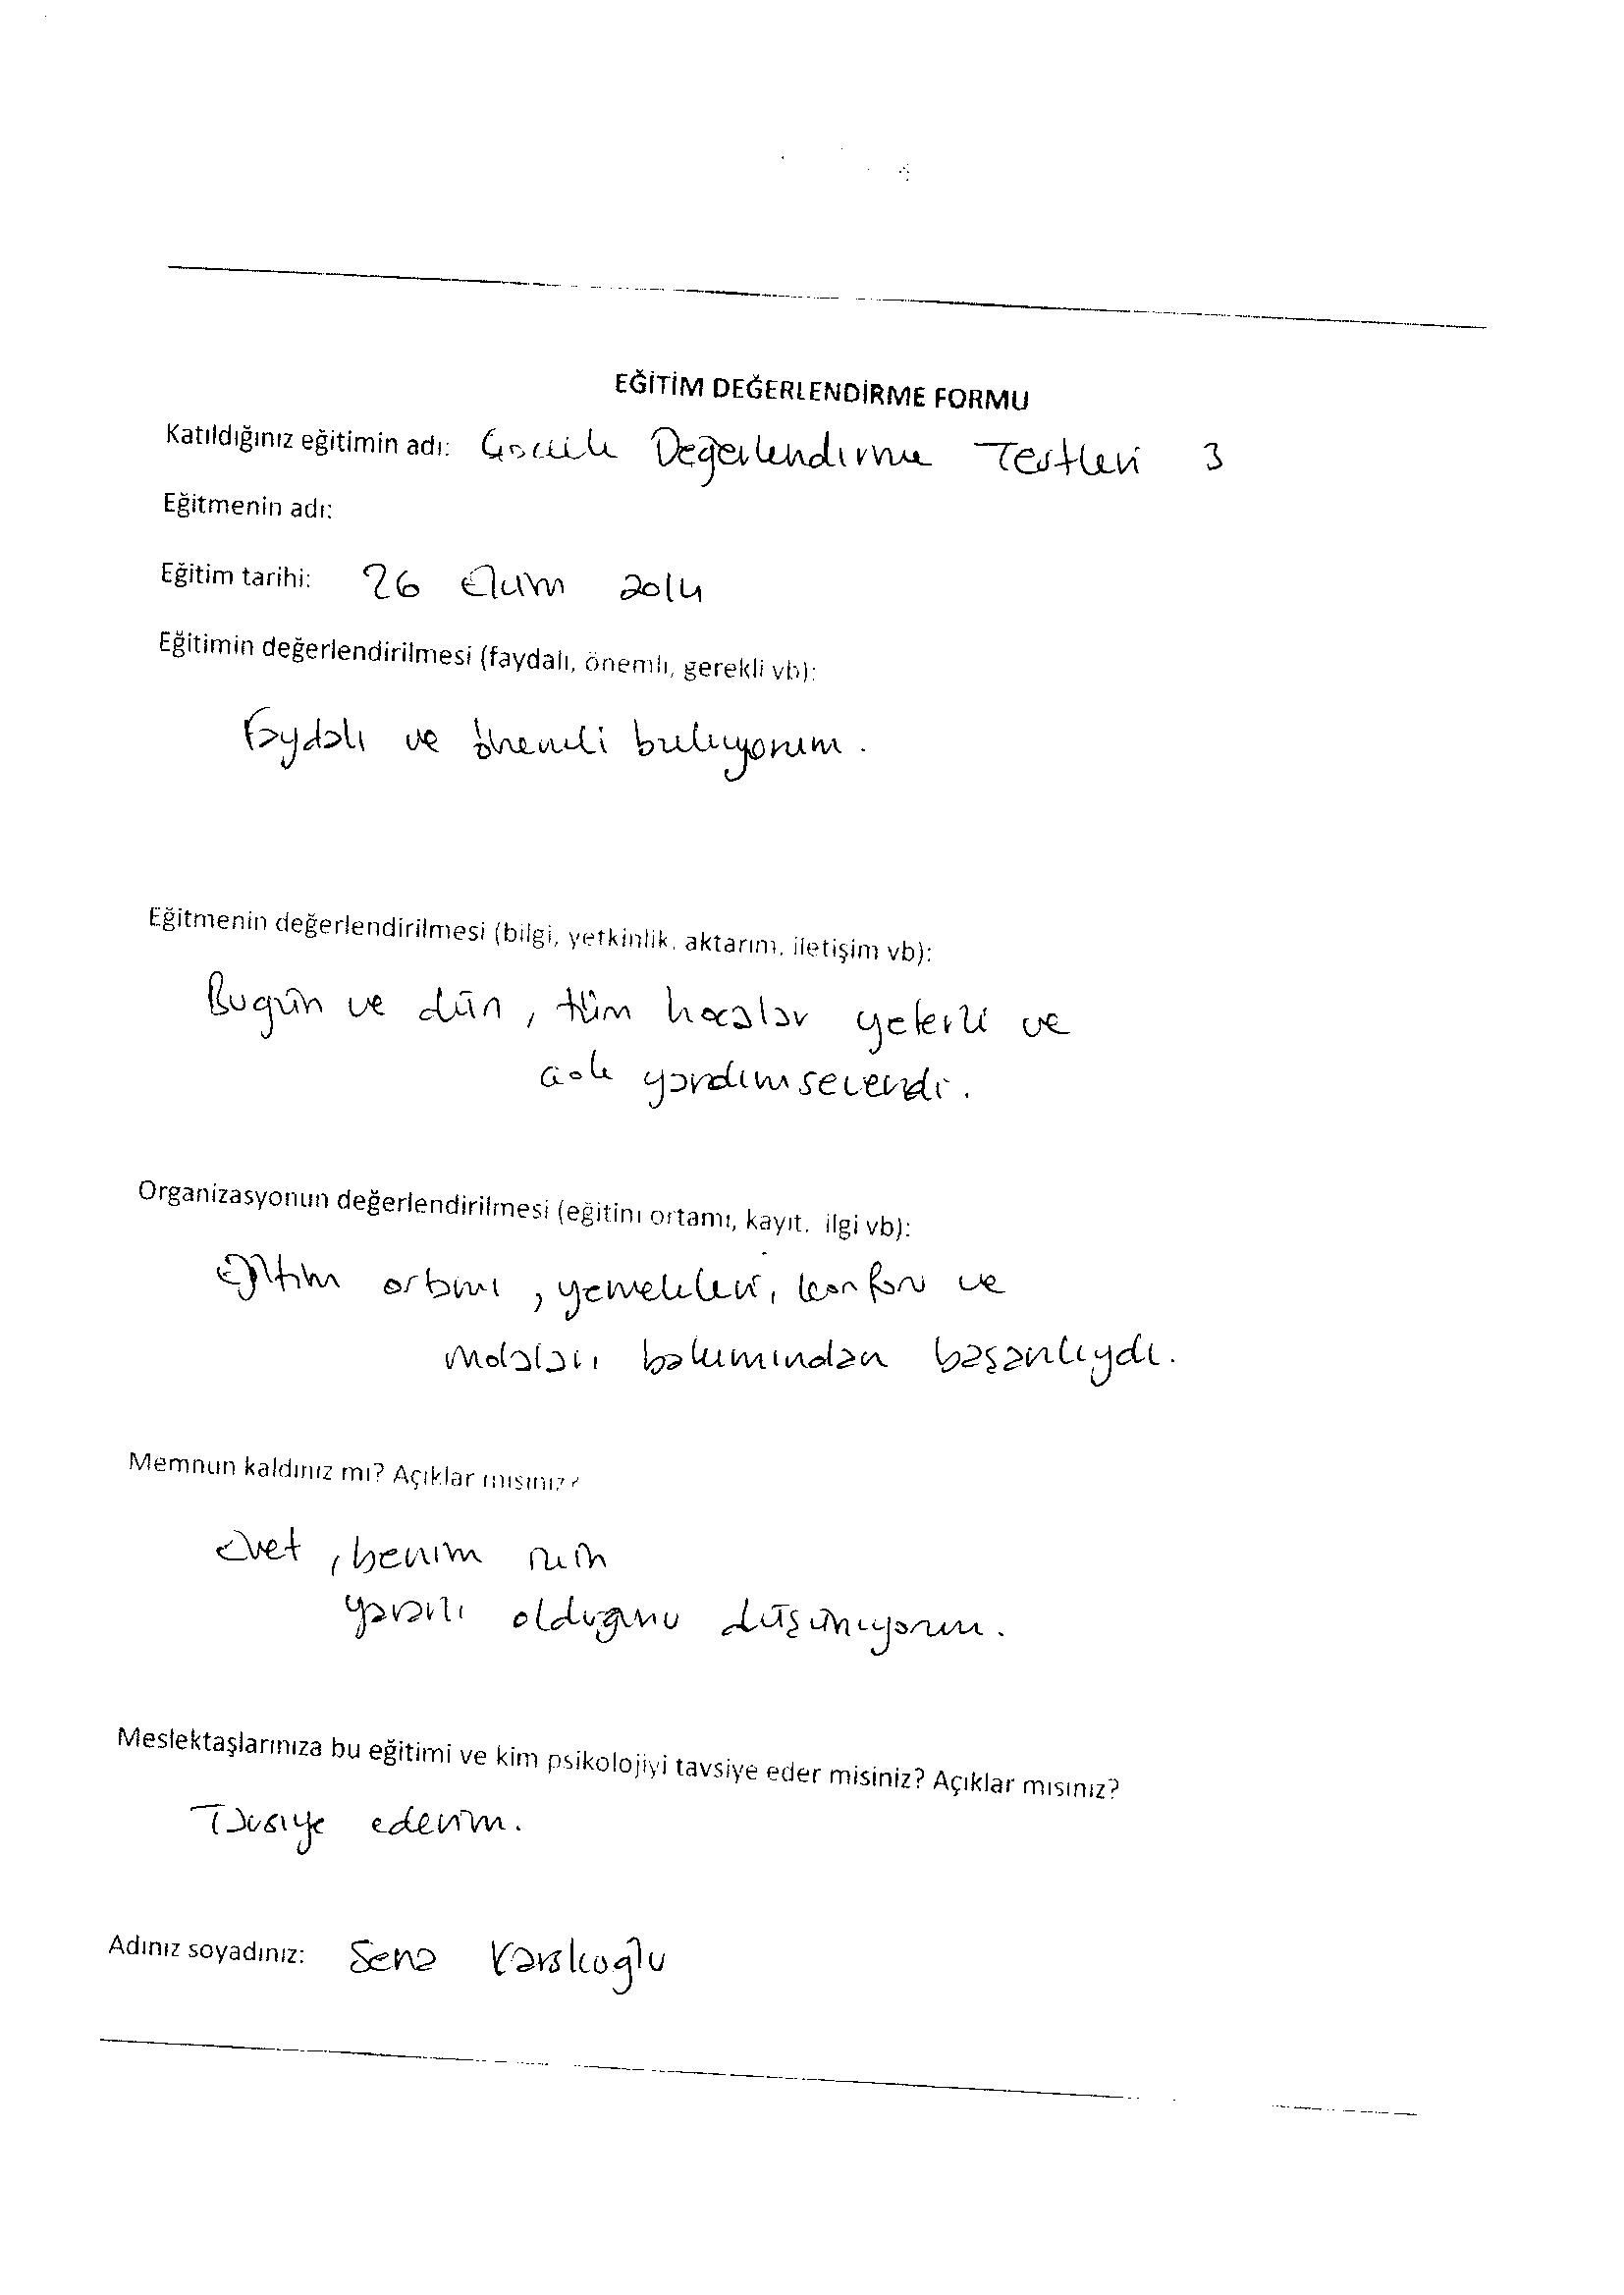 EĞİTİM DEĞERLENDİRME FORMU
Katıldığınız eğitimin adı: Çocuk Değerlendirme Testleri 3
Eğitmenin adı:
Eğitim tarihi: 26 Ekim 2014
Eğitimin değerlendirilmesi (faydalı, önemli, gerekli vb):
Faydalı ve önemli buluyorum.
Eğitmenin değerlendirilmesi (bilgi, yetkinlik, aktarım, iletişim vb):
Bugün ve dün, tüm hocalar yeterli ve
çok yardımseverdi.
Organizasyonun değerlendirilmesi (eğitim ortamı, kayıt, ilgi vb):
Eğitim ortamı, yemekleri, konforu ve
molaları bakımından başarılıydı.
Memnun kaldınız mı? Açıklar mısınız?
Evet, benim için
yararlı olduğunu düşünüyorum.
Meslektaşlarınıza bu eğitimi ve kim psikolojiyi tavsiye eder misiniz? Açıklar mısınız?
Tavsiye ederim.
Adınız soyadınız: Sena